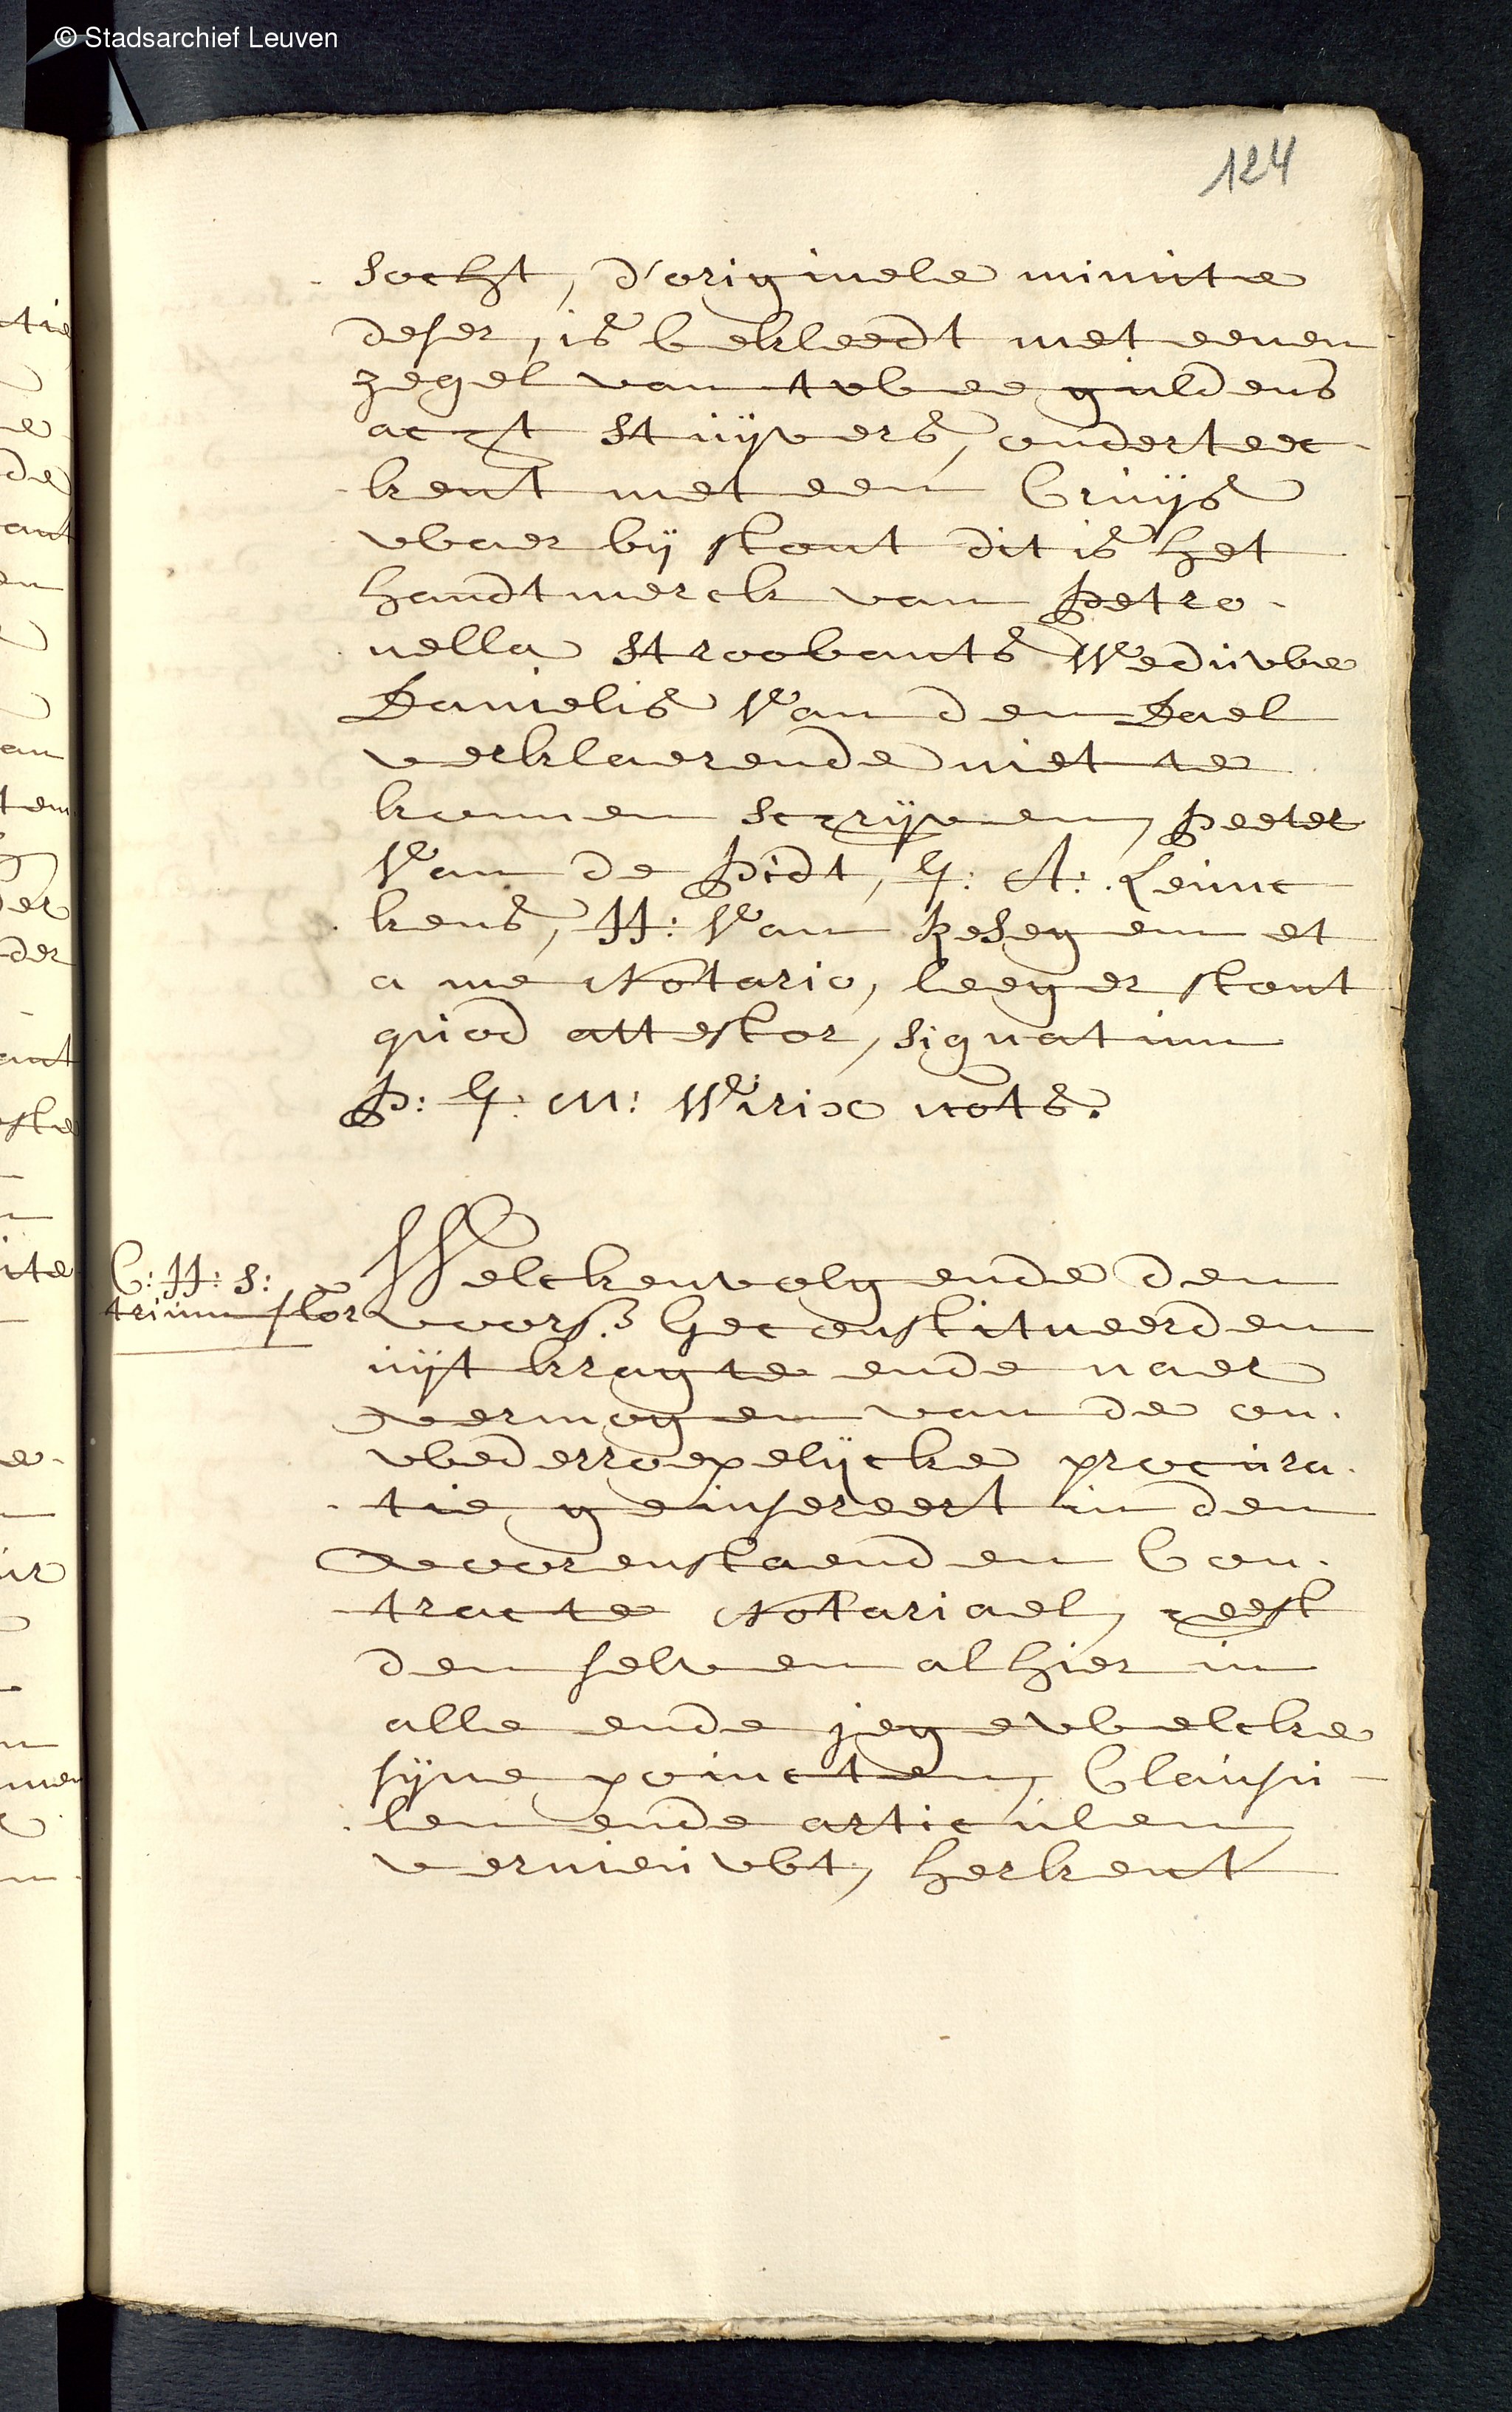 © Stadsarchief Leuven
124
socht, d'originele minute
deser, is bekleedt met eenen
zegel van twee guldens
acht stuijvers, onderteec-
kent met een Cruijs
waer bij stont dit is het
handtmerck van Petro-
nella Stroobants Weduwe
Danielis Van den Dael
verklaerende niet te
konnen schrijven, Peeter
Van de Pidt, G: A: Leunc
kens, H: Van Reseg em et
a me Notario, leeger stont
quod attestor, signatum
P: G: M: Wirix nots.
C: H: S:
trium flor
Welckenvolgende den
voors. Geconstitueerden
uijt kragte ende naer
vermogen van de on-
wederroepelijcke procura-
tie geinsereert in den
voorenstaenden Con-
tracte Notariael, heeft
den selven alhier in
alle ende jegewelcke
sijne poincten, Clausu-
len ende articulen
vernieuwt, herkent